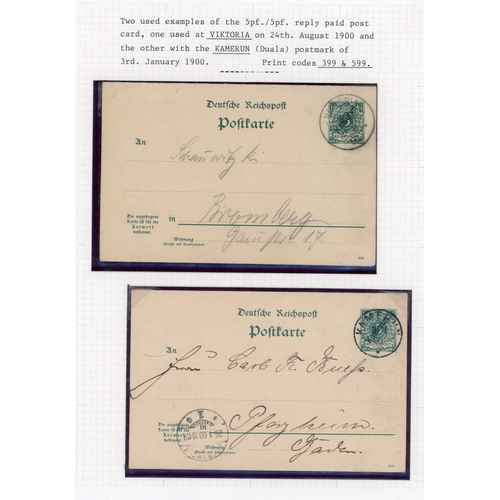 Two used examples of the 5pf./5pf. reply paid post
card, one used at VIKTORIA on 24th. August 1900 and
the other with the KAMERUN (Duala) postmark of
3rd. January 1900. Print codes 399 & 599.
Deutsche Reichspost
Postkarte
An
Bromberg
in
Die angebogene
Karte ist für die
Antwort
bestimmt.
Wohnung
(Straße und Hausnummer)
Deutsche Reichspost
Postkarte
KAMERUN
An
Herrn Carl Fr.
in Pforzheim
Baden.
Die angebogene
Karte ist für die
Antwort
bestimmt.
Wohnung
(Straße und Hausnummer)